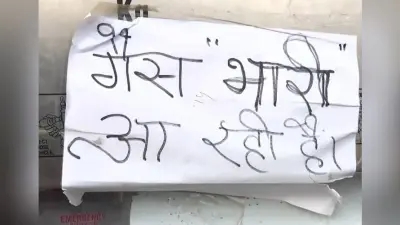 गैस "भारी"
आ रही है।